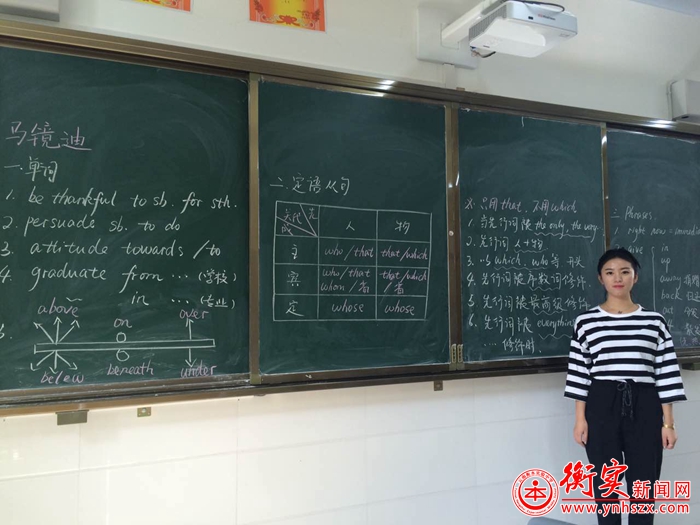 马镜迪
一.单词
1. be thankful to sb. for sth.
2. persuade sb. to do
3. attitude towards / to
4. graduate from … (学校)
in … (专业)
above on over
below beneath under
二.定语从句
关代 先
成 人 物
主 who/that that/which
宾 who/that that/which
whom/省 /省
定 whose whose
X. 只用that, 不用which
1. 当先行词是 the only, the very
2. 先行词 人+物
3. …与 which, who等 开头
4. 先行词 序数词 修饰
5. 先行词 最高级 修饰
6. 先行词 everything
… 修饰时.
三 Phrases.
1. right now =
give in
up
away
back
out
衡实新闻网
www.ynhszx.com